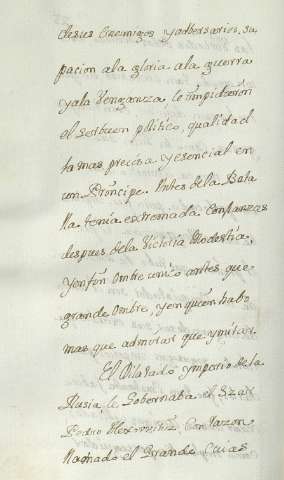 desus Enemigos yadbersarios, su
pacion ala gloria ala guerra
yala Venganza, le impidieron
el serbuen politico, qualidad
ta mas precisa yesencial en
un Principe. Antes dela Bata
lla tenia extremada Confianzas
despues dela Victoria Modestia.
yenfin Ombre unico antes que
grande Ombre, yen quien habo
mas que admirar que ymitar.
El Dilatado ymperio dela
Rusia, le Gobernaba el Szar
Pedro Alexovitz Con razon
llamado el Grande Cuias